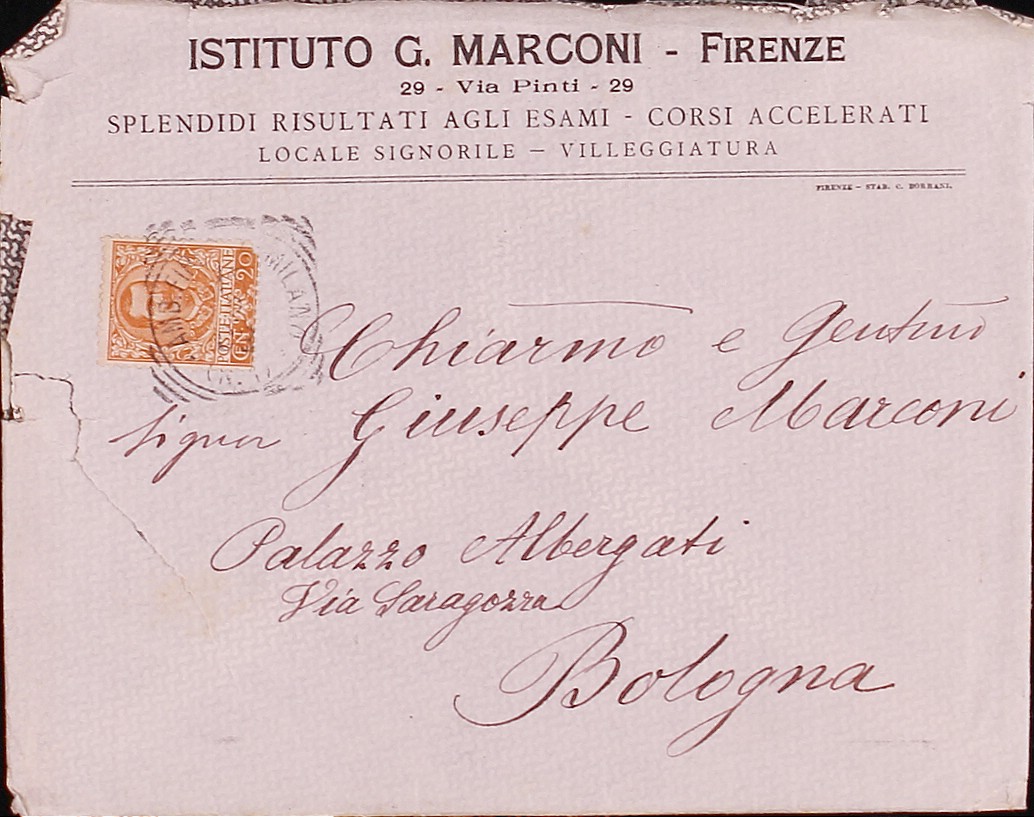 ISTITUTO G. MARCONI - FIRENZE
29 - Via Pinti - 29
SPLENDIDI RISULTATI AGLI ESAMI - CORSI ACCELERATI
LOCALE SIGNORILE — VILLEGGIATURA
FIRENZE - STAB. C. BORRANI.
POSTE ITALIANE
CEN. 20
AMB. MILANO
Chiarmo e Gentmo
Signor Giuseppe Marconi
Palazzo Albergati
Via Saragozza
Bologna